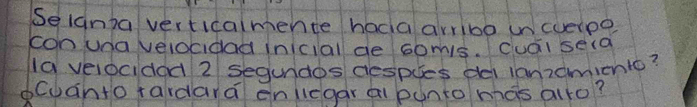 Se lanza verticalmente hacia arriba un cuerpo
con una velocidad inicial de 60m/s. cuál será
la velocidad 2 segundos después del lanzamiento?
cuánto tardará en llegar al punto más alto?